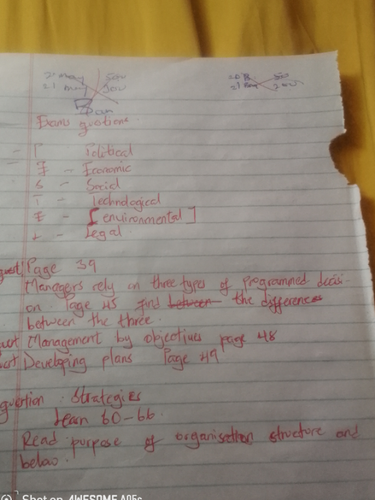 Exams questions
P - Political
E - Economic
S - Social
T - Technological
E - [environmental]
L - Legal
Page 39
Managers rely on three types of Programmed decisi-
on Page 45 find between the differences
between the three.
Management by objectives page 48
Developing plans Page 49
question : Strategies
learn 60-66.
Read purpose of organisation structure and
below.
Shot on AWESOME A05s